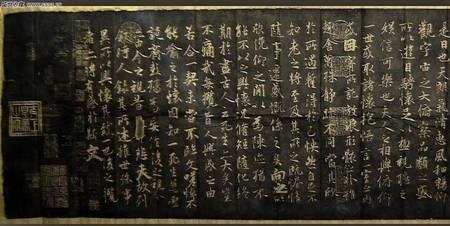 是日也天朗氣清惠風和暢仰
觀宇宙之大俯察品類之盛
所以遊目騁懷足以極視聽之
娛信可樂也夫人之相與俯仰
一世或取諸懷抱悟言一室之內
或因寄所託放浪形骸之外雖
趣舍萬殊靜躁不同當其欣
於所遇暫得於己快然自足不
知老之將至及其所之既惓情
隨事遷感慨係之矣向之所
欣俛仰之間以為陳迹猶不
能不以之興懷況脩短隨化終
期於盡古人云死生亦大矣豈
不痛哉每攬昔人興感之由
若合一契未嘗不臨文嗟悼不
能喻之於懷固知一死生為虛
誕齊彭殤為妄作後之視今
亦由今之視昔悲夫故列
敘時人錄其所述雖世殊事
異所以興懷其致一也後之攬
者亦將有感於斯文